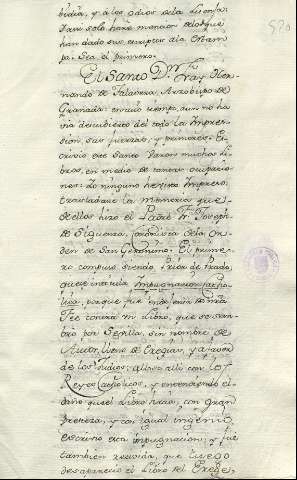 bidia, y a los odios de la Lisonja.
Tan solo haré mencion de los que
han dado sus escriptos a la Estam-
pa. Sea el primero.
El Santo D.n Fray Her-
nando de Talavera, Arzobispo de
Granada: en cuio tiempo, aun no ha
via descubierto del todo la Impres-
sion, sus fuerzas, y primores. Es-
crivio este Santo Varon muchos Li-
bros, en medio de tantas ocupacio-
nes: Yo ninguno he visto Impreso,
trasladaré la memoria que
de ellos hizo el Padre Fr. Joseph
de Siguenza, Coronista de la Or-
den de San Geronimo. El prime-
ro compuso siendo Prior de Prado,
que se intitula Impugnacion Catho-
lica, porque fue en defensa de nra
Fee contra un Libro, que se sem-
bró por Sevilla, sin nombre de
Autor, lleno de Eregias, y a favor
de los Judios; allose alli con los
Reyes Catholicos, y entendiendo el
daño que el Libro hacia, con gran
presteza, y con igual ingenio
escrivio esta impugnacion, y fue
tambien recevida, que luego
desaparecio el Libro del Erege,